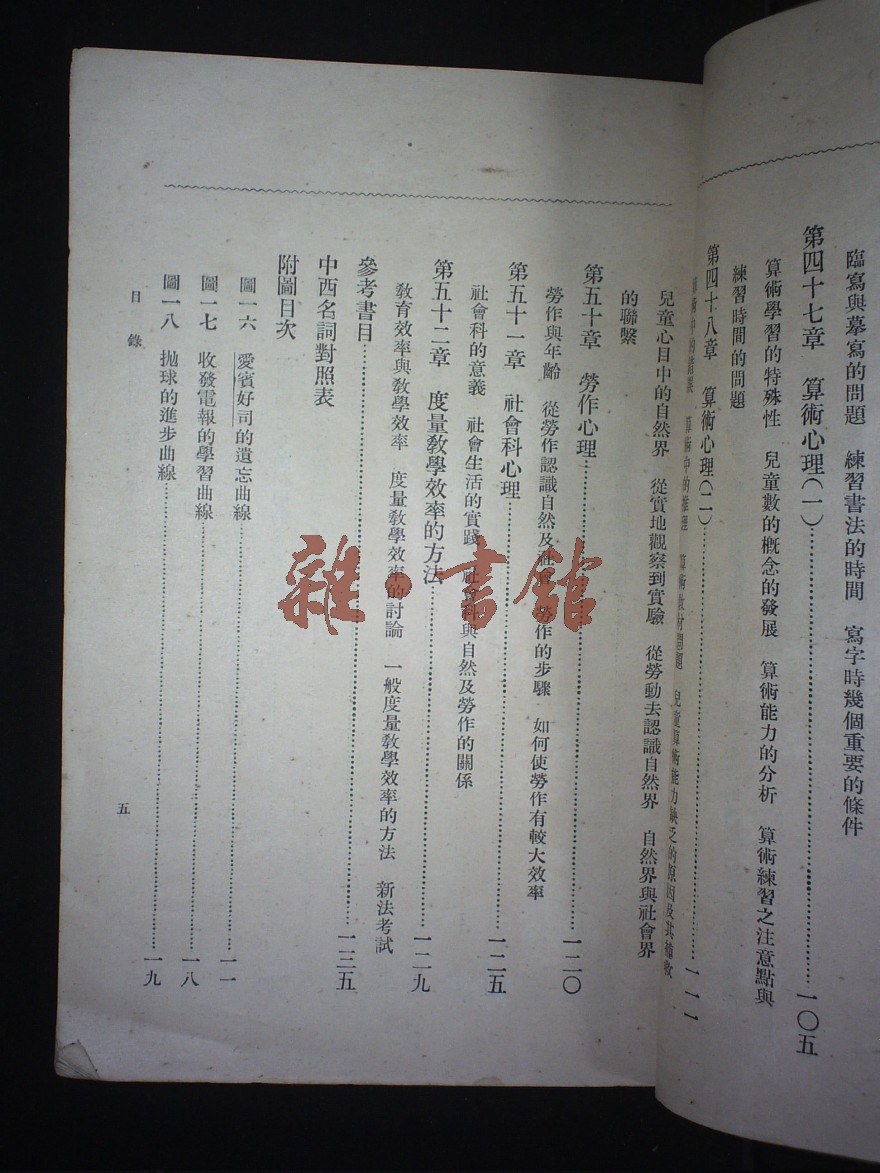 臨寫與摹寫的問題　練習書法的時間　寫字時幾個重要的條件
第四十七章　算術心理(一)……一〇五
算術學習的特殊性　兒童數的概念的發展　算術能力的分析　算術練習之注意點與
練習時間的問題
第四十八章　算術心理(二)……一一一
算術中的錯誤　算術中的推理　算術教材問題　兒童算術能力缺乏的原因及其補救
兒童心目中的自然界　從實地觀察到實驗　從勞動去認識自然界　自然界與社會界
的聯繫
第五十章　勞作心理……一二〇
勞作與年齡　從勞作認識自然及社會　勞作的步驟　如何使勞作有較大效率
第五十一章　社會科心理……一二五
社會科的意義　社會生活的實踐　社會科與自然及勞作的關係
第五十二章　度量教學效率的方法……一二九
教育效率與教學效率　度量教學效率的討論　一般度量教學效率的方法　新法考試
參考書目……一三五
中西名詞對照表
附圖目次
圖一六　愛賓好司的遺忘曲線……一一
圖一七　收發電報的學習曲線……一八
圖一八　拋球的進步曲線……一九
目錄
五
雜·書館